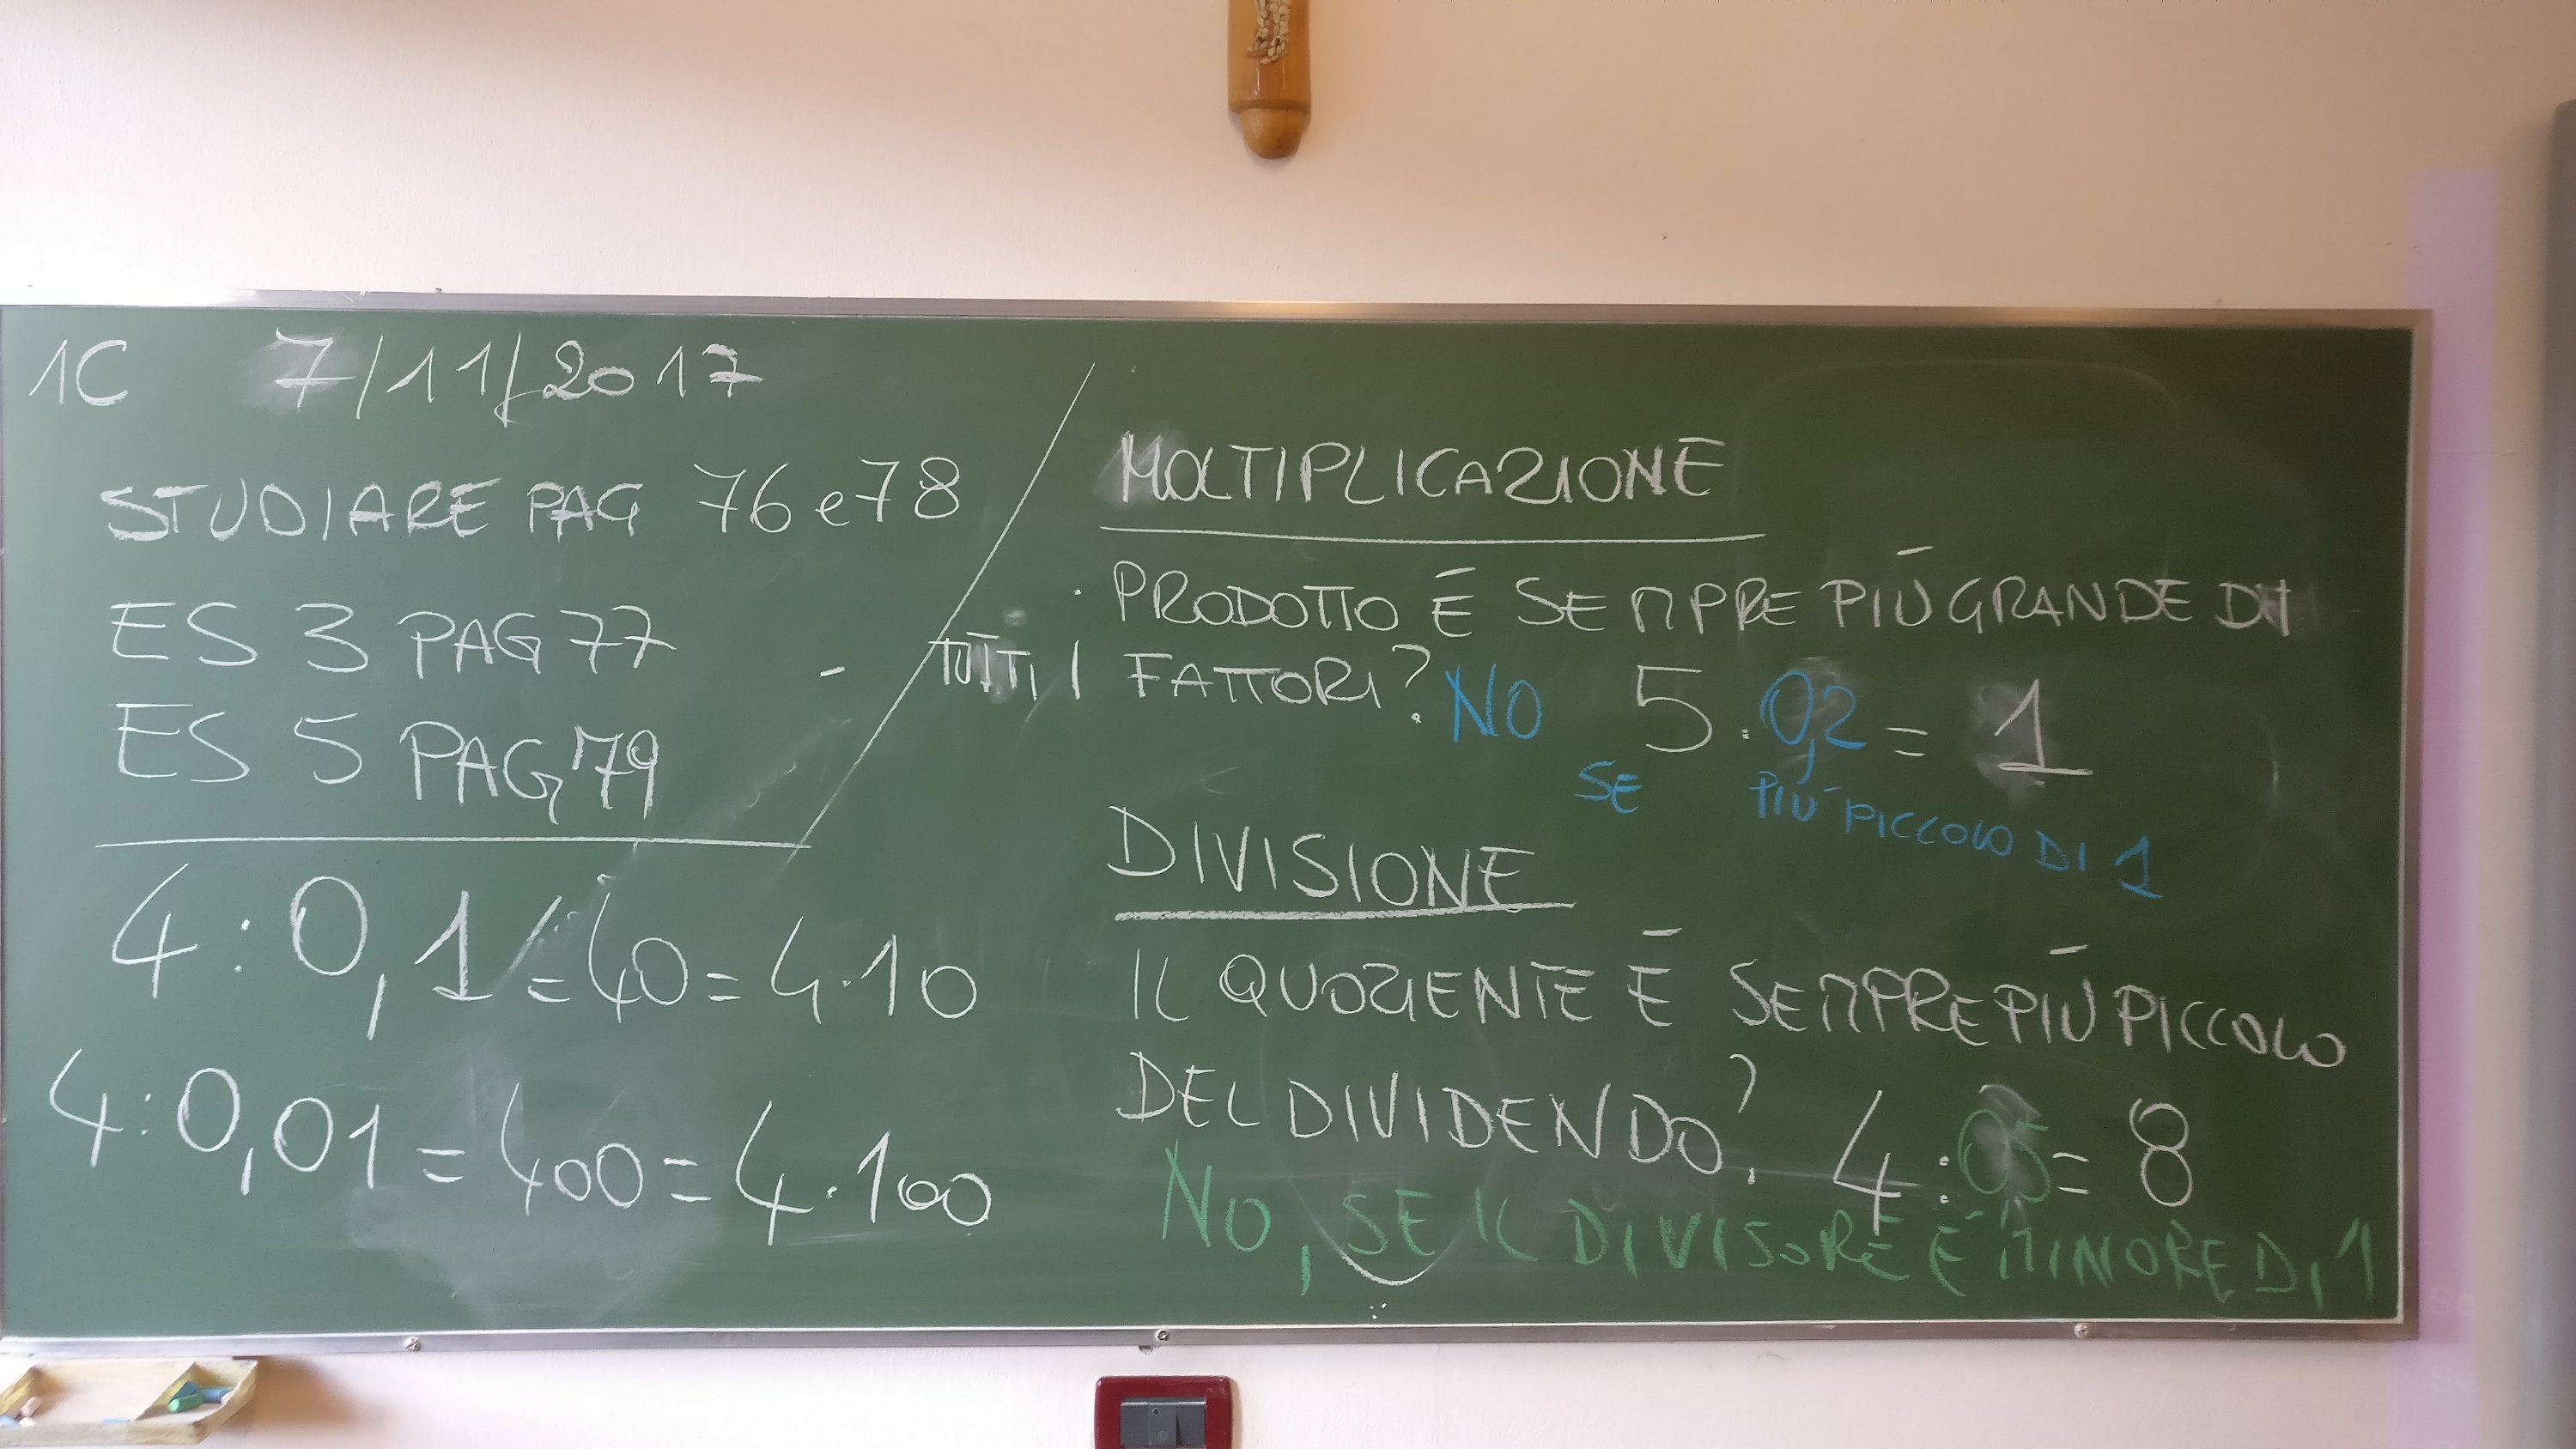 1C 7/11/2017
STUDIARE PAG 76 e 78
ES 3 PAG 77
ES 5 PAG 79
4 : 0,1 = 40 = 4·10
4 : 0,01 = 400 = 4·100
MOLTIPLICAZIONE
PRODOTTO È SEMPRE PIÙ GRANDE DI
TUTTI I FATTORI? NO 5 · 0,2 = 1
SE PIÙ PICCOLO DI 1
DIVISIONE
IL QUOZIENTE È SEMPRE PIÙ PICCOLO
DEL DIVIDENDO? 4 : 0,5 = 8
NO, SE IL DIVISORE È MINORE DI 1